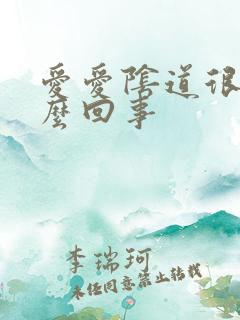 愛愛陰道很
麼回事
李瑞珂
未任同意禁止轉載